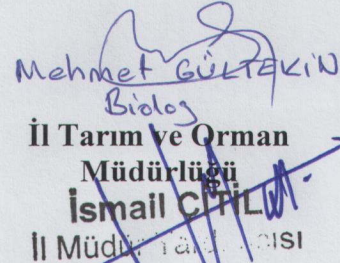 Mehmet GÜLTEKİN
Biolog
İl Tarım ve Orman
Müdürlüğü
İsmail ÇİTİL
İl Müdür Yardımcısı